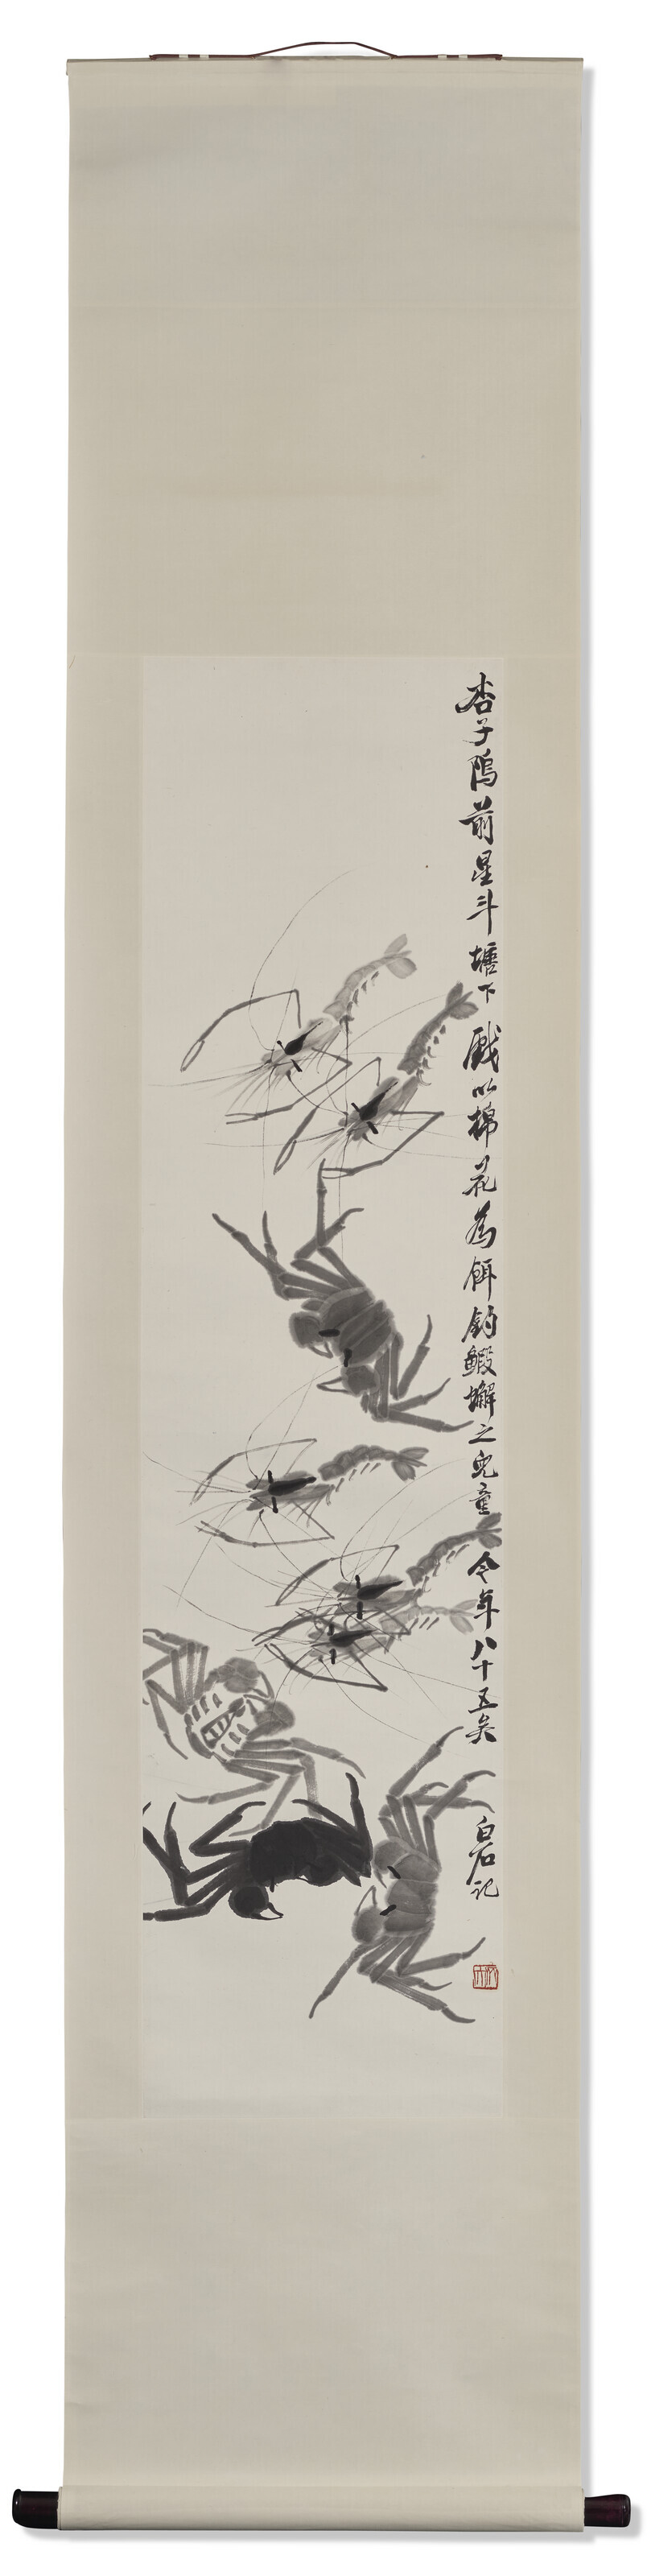 杏子隖前星斗塘下戲以棉花為餌釣鰕蠏之兒童今年八十五矣 白石記